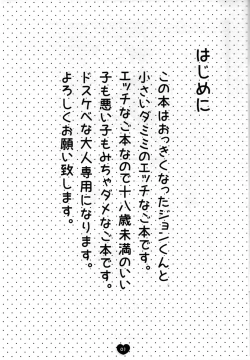 はじめに
この本はおっきくなったジョンくんと
小さいダミミのエッチなご本です。
エッチなご本なので十八歳未満のいい
子も悪い子もみちゃダメなご本です。
ドスケベな大人専用になります。
よろしくお願い致します。